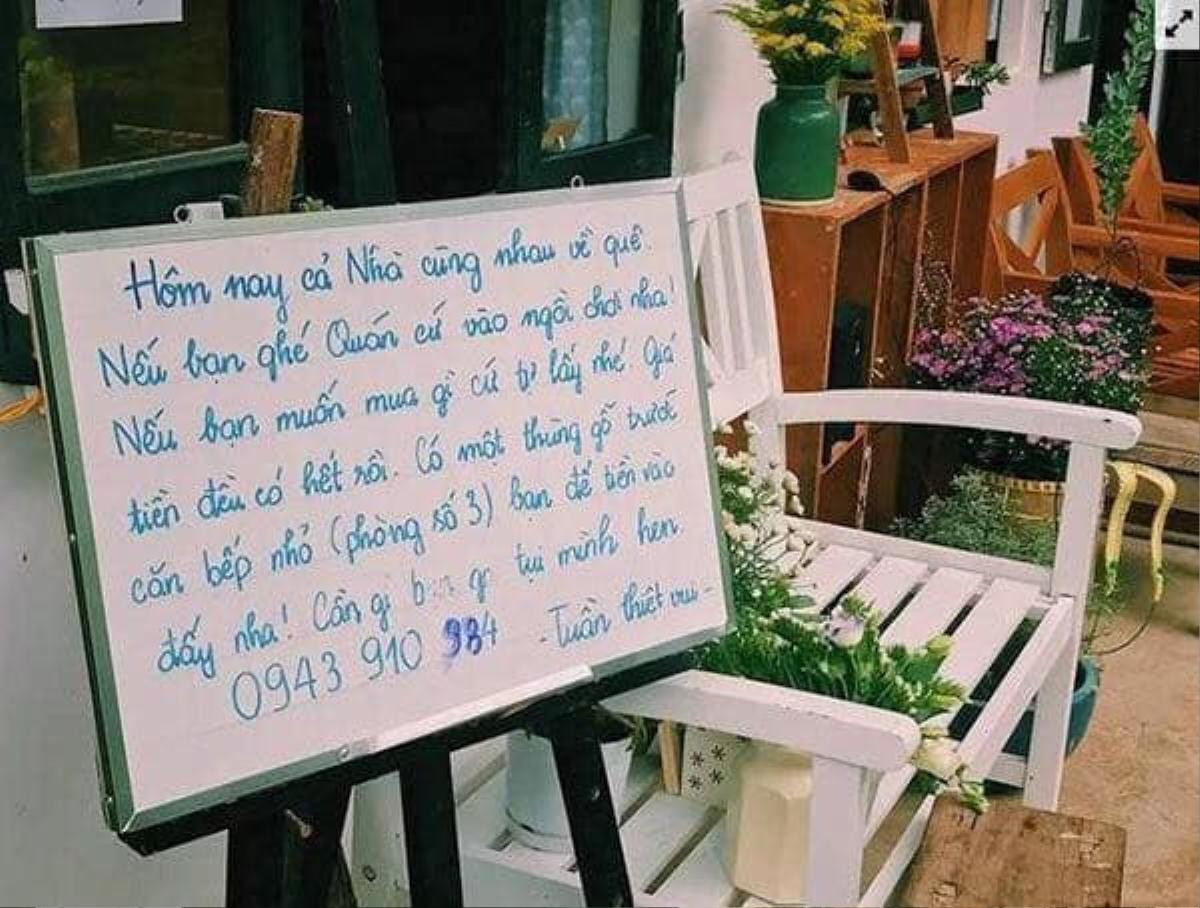 Hôm nay cả Nhà cùng nhau về quê.
Nếu bạn ghé Quán cứ vào ngồi chơi nha!
Nếu bạn muốn mua gì cứ tự lấy nhé. Giá
tiền đều có hết rồi. Có một thùng gỗ trước
căn bếp nhỏ (phòng số 3) bạn để tiền vào
đấy nha! Cần gì tụi mình hen
0943 910 984 - Tuần thiết vui -